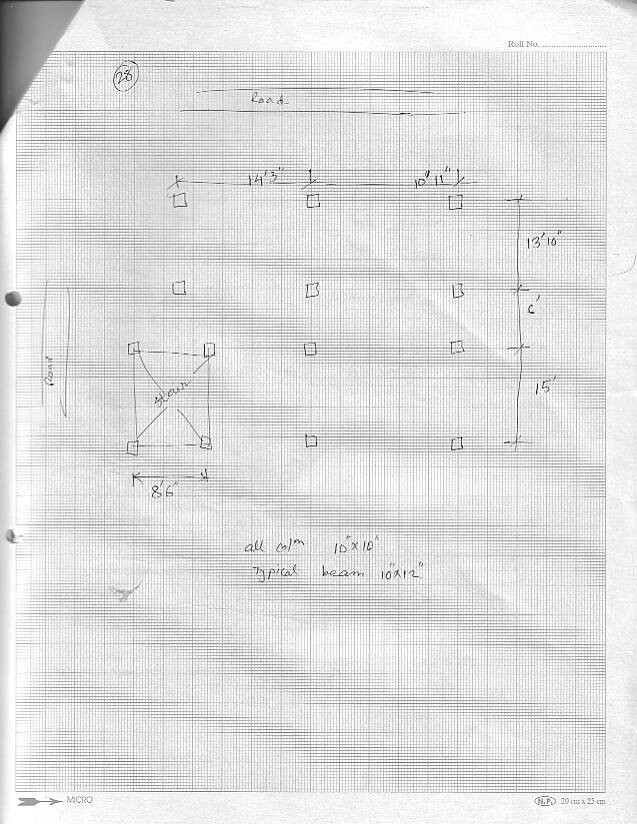 Roll No.
28
Road
14'3" 10" 11"
13'10"
6'
Road
stair
15'
8'6"
all colm 10"x10"
Typical beam 10"x12"
MICRO N.P. 20 cm x 25 cm